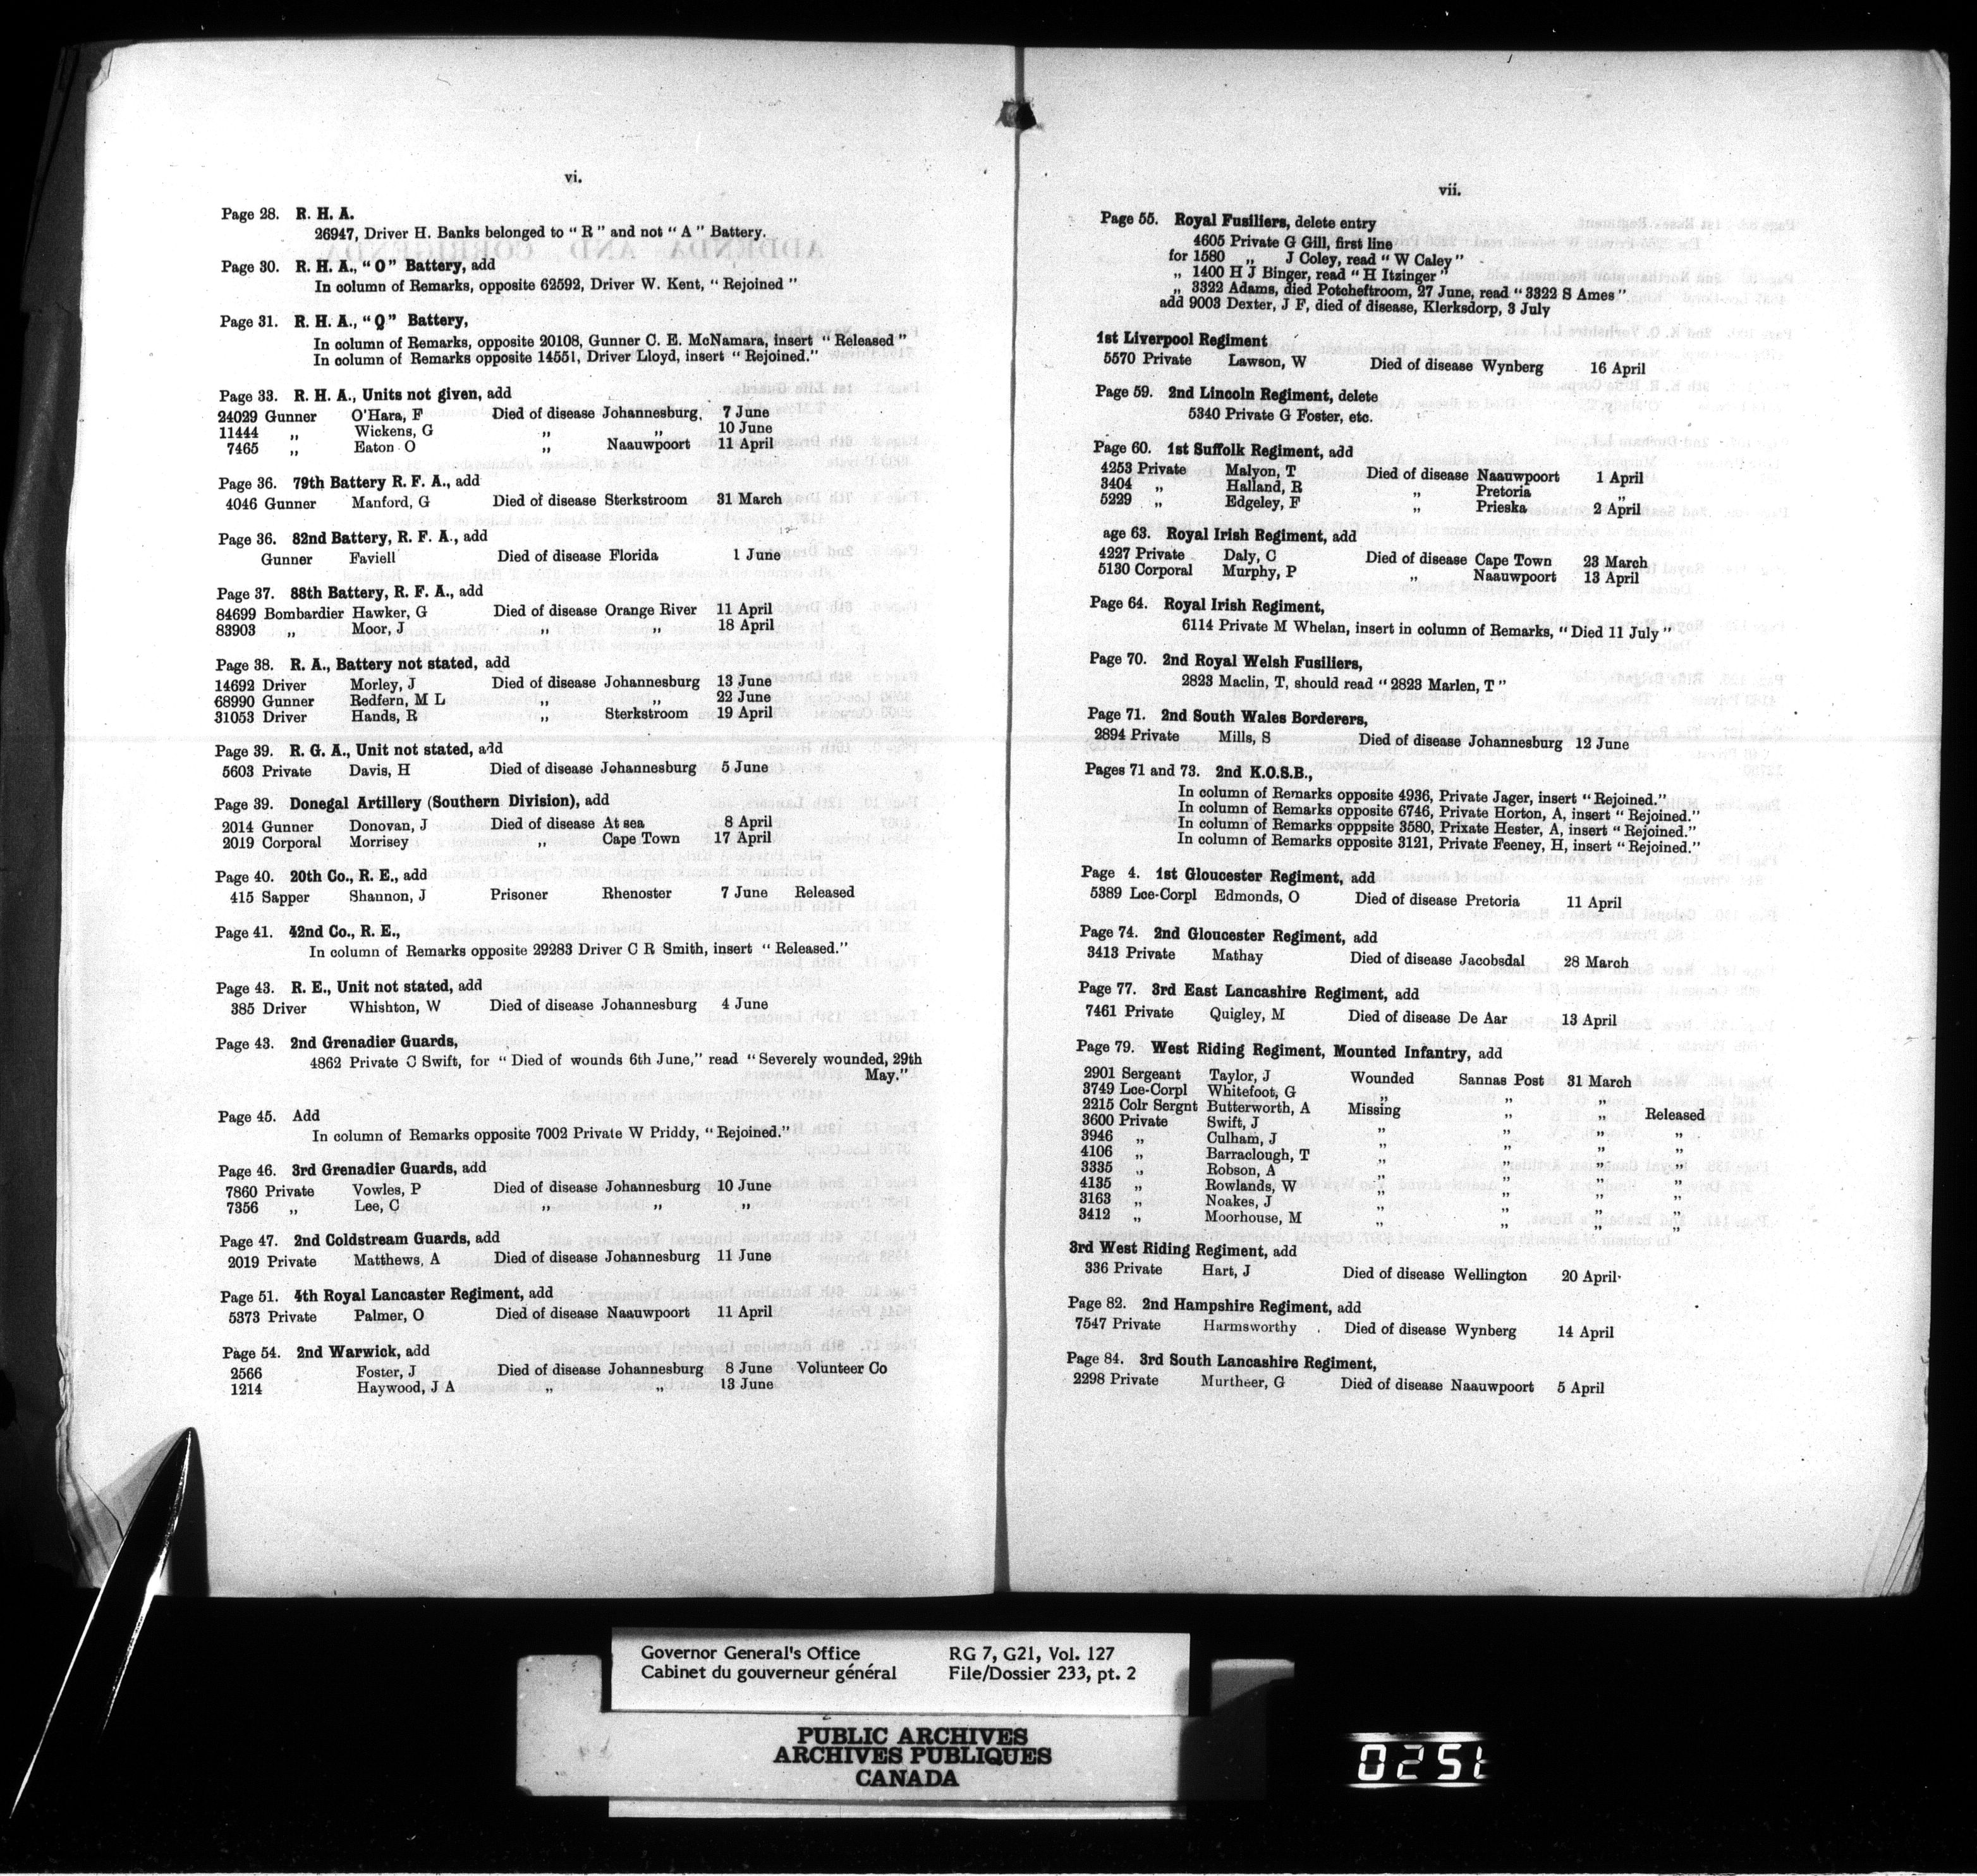 vi.
Page 28. R. H. A.
26947, Driver H. Banks belonged to “ R ” and not “ A ” Battery.
Page 30. R. H. A., “ O ” Battery, add
In column of Remarks, opposite 62592, Driver W. Kent, “ Rejoined ”
Page 31. R. H. A., “ Q ” Battery,
In column of Remarks, opposite 20108, Gunner C. E. McNamara, insert “ Released ”
In column of Remarks opposite 14551, Driver Lloyd, insert “ Rejoined.”
Page 33. R. H. A., Units not given, add
24029 Gunner O'Hara, F Died of disease Johannesburg, 7 June
11444 „ Wickens, G „ „ 10 June
7465 „ Eaton O „ Naauwpoort 11 April
Page 36. 79th Battery R. F. A., add
4046 Gunner Manford, G Died of disease Sterkstroom 31 March
Page 36. 82nd Battery, R. F. A., add
Gunner Faviell Died of disease Florida 1 June
Page 37. 88th Battery, R. F. A., add
84699 Bombardier Hawker, G Died of disease Orange River 11 April
83903 „ Moor, J „ „ 18 April
Page 38. R. A., Battery not stated, add
14692 Driver Morley, J Died of disease Johannesburg 13 June
68990 Gunner Redfern, M L „ „ 22 June
31053 Driver Hands, R „ Sterkstroom 19 April
Page 39. R. G. A., Unit not stated, add
5603 Private Davis, H Died of disease Johannesburg 5 June
Page 39. Donegal Artillery (Southern Division), add
2014 Gunner Donovan, J Died of disease At sea 8 April
2019 Corporal Morrisey „ Cape Town 17 April
Page 40. 20th Co., R. E., add
415 Sapper Shannon, J Prisoner Rhenoster 7 June Released
Page 41. 42nd Co., R. E.,
In column of Remarks opposite 29283 Driver C R Smith, insert “ Released.”
Page 43. R. E., Unit not stated, add
385 Driver Whishton, W Died of disease Johannesburg 4 June
Page 43. 2nd Grenadier Guards,
4862 Private C Swift, for “ Died of wounds 6th June,” read “ Severely wounded, 29th
May.”
Page 45. Add
In column of Remarks opposite 7002 Private W Priddy, “ Rejoined.”
Page 46. 3rd Grenadier Guards, add
7860 Private Vowles, P Died of disease Johannesburg 10 June
7356 „ Lee, C „ „ „
Page 47. 2nd Coldstream Guards, add
2019 Private Matthews, A Died of disease Johannesburg 11 June
Page 51. 4th Royal Lancaster Regiment, add
5373 Private Palmer, O Died of disease Naauwpoort 11 April
Page 54. 2nd Warwick, add
2566 Foster, J Died of disease Johannesburg 8 June Volunteer Co
1214 Haywood, J A „ „ 13 June
vii.
Page 55. Royal Fusiliers, delete entry
4605 Private G Gill, first line
for 1580 „ J Coley, read “ W Caley ”
„ 1400 H J Binger, read “ H Itzinger ”
„ 3322 Adams, died Potcheftroom, 27 June, read “ 3322 S Ames ”
add 9003 Dexter, J F, died of disease, Klerksdorp, 3 July
1st Liverpool Regiment
5570 Private Lawson, W Died of disease Wynberg 16 April
Page 59. 2nd Lincoln Regiment, delete
5340 Private G Foster, etc.
Page 60. 1st Suffolk Regiment, add
4253 Private Malyon, T Died of disease Naauwpoort 1 April
3404 „ Halland, R „ Pretoria „
5229 „ Edgeley, F „ Prieska 2 April
age 63. Royal Irish Regiment, add
4227 Private Daly, C Died of disease Cape Town 23 March
5130 Corporal Murphy, P „ Naauwpoort 13 April
Page 64. Royal Irish Regiment,
6114 Private M Whelan, insert in column of Remarks, “ Died 11 July ”
Page 70. 2nd Royal Welsh Fusiliers,
2823 Maclin, T, should read “ 2823 Marlen, T ”
Page 71. 2nd South Wales Borderers,
2894 Private Mills, S Died of disease Johannesburg 12 June
Pages 71 and 73. 2nd K.O.S.B.,
In column of Remarks opposite 4936, Private Jager, insert “ Rejoined.”
In column of Remarks opposite 6746, Private Horton, A, insert “ Rejoined.”
In column of Remarks opppsite 3580, Prixate Hester, A, insert “ Rejoined.”
In column of Remarks opposite 3121, Private Feeney, H, insert “ Rejoined.”
Page 4. 1st Gloucester Regiment, add
5389 Lce-Corpl Edmonds, O Died of disease Pretoria 11 April
Page 74. 2nd Gloucester Regiment, add
3413 Private Mathay Died of disease Jacobsdal 28 March
Page 77. 3rd East Lancashire Regiment, add
7461 Private Quigley, M Died of disease De Aar 13 April
Page 79. West Riding Regiment, Mounted Infantry, add
2901 Sergeant Taylor, J Wounded Sannas Post 31 March
3749 Lce-Corpl Whitefoot, G „ „ „
2215 Colr Sergnt Butterworth, A Missing „ „ Released
3600 Private Swift, J „ „ „ „
3946 „ Culham, J „ „ „ „
4106 „ Barraclough, T „ „ „ „
3335 „ Robson, A „ „ „ „
4135 „ Rowlands, W „ „ „ „
3163 „ Noakes, J „ „ „ „
3412 „ Moorhouse, M „ „ „ „
3rd West Riding Regiment, add
336 Private Hart, J Died of disease Wellington 20 April
Page 82. 2nd Hampshire Regiment, add
7547 Private Harmsworthy Died of disease Wynberg 14 April
Page 84. 3rd South Lancashire Regiment,
2298 Private Murtheer, G Died of disease Naauwpoort 5 April
Governor General's Office RG 7, G21, Vol. 127
Cabinet du gouverneur général File/Dossier 233, pt. 2
PUBLIC ARCHIVES
ARCHIVES PUBLIQUES
CANADA
0251